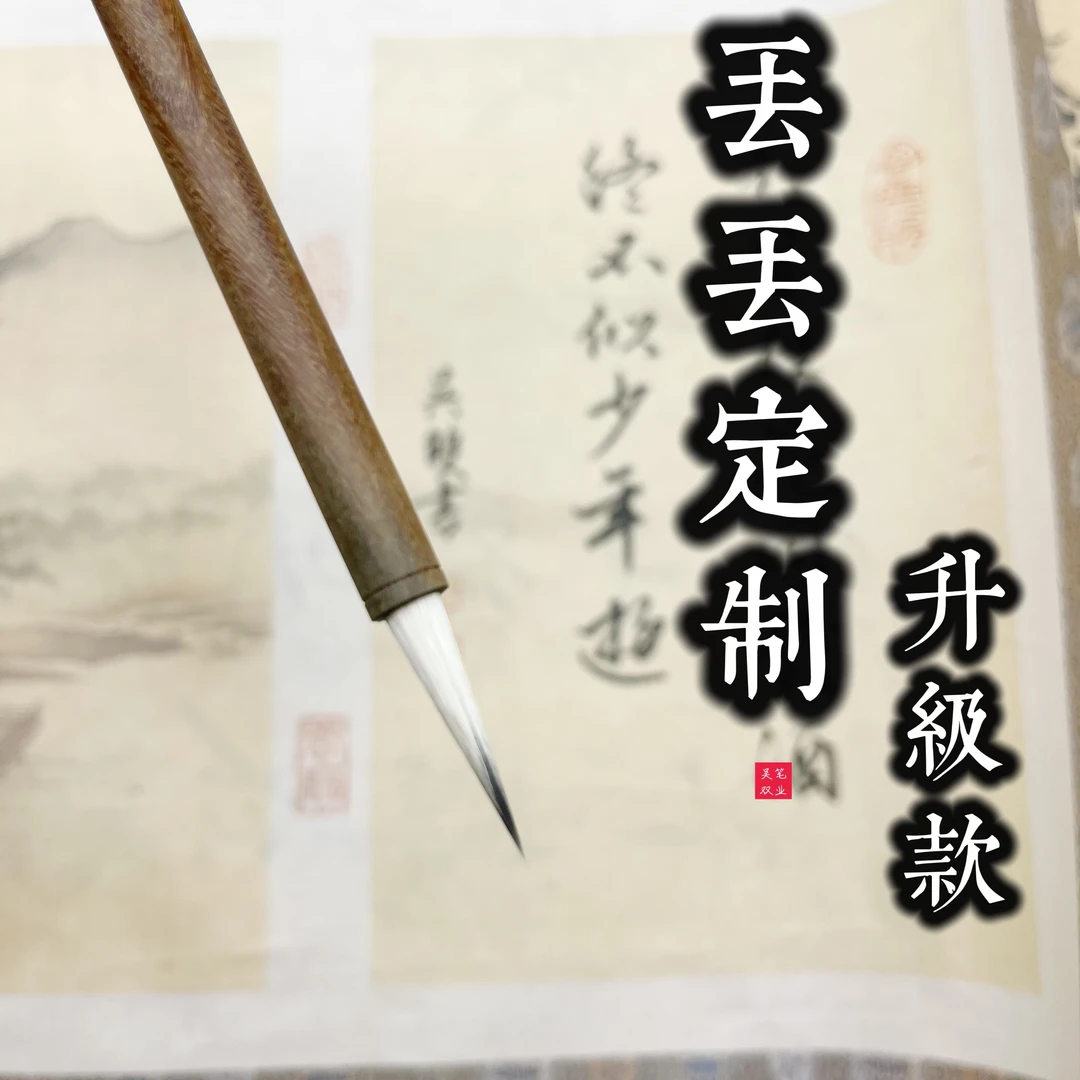 丟丟定制
升級款
吴笔
双业
終不似少年遊